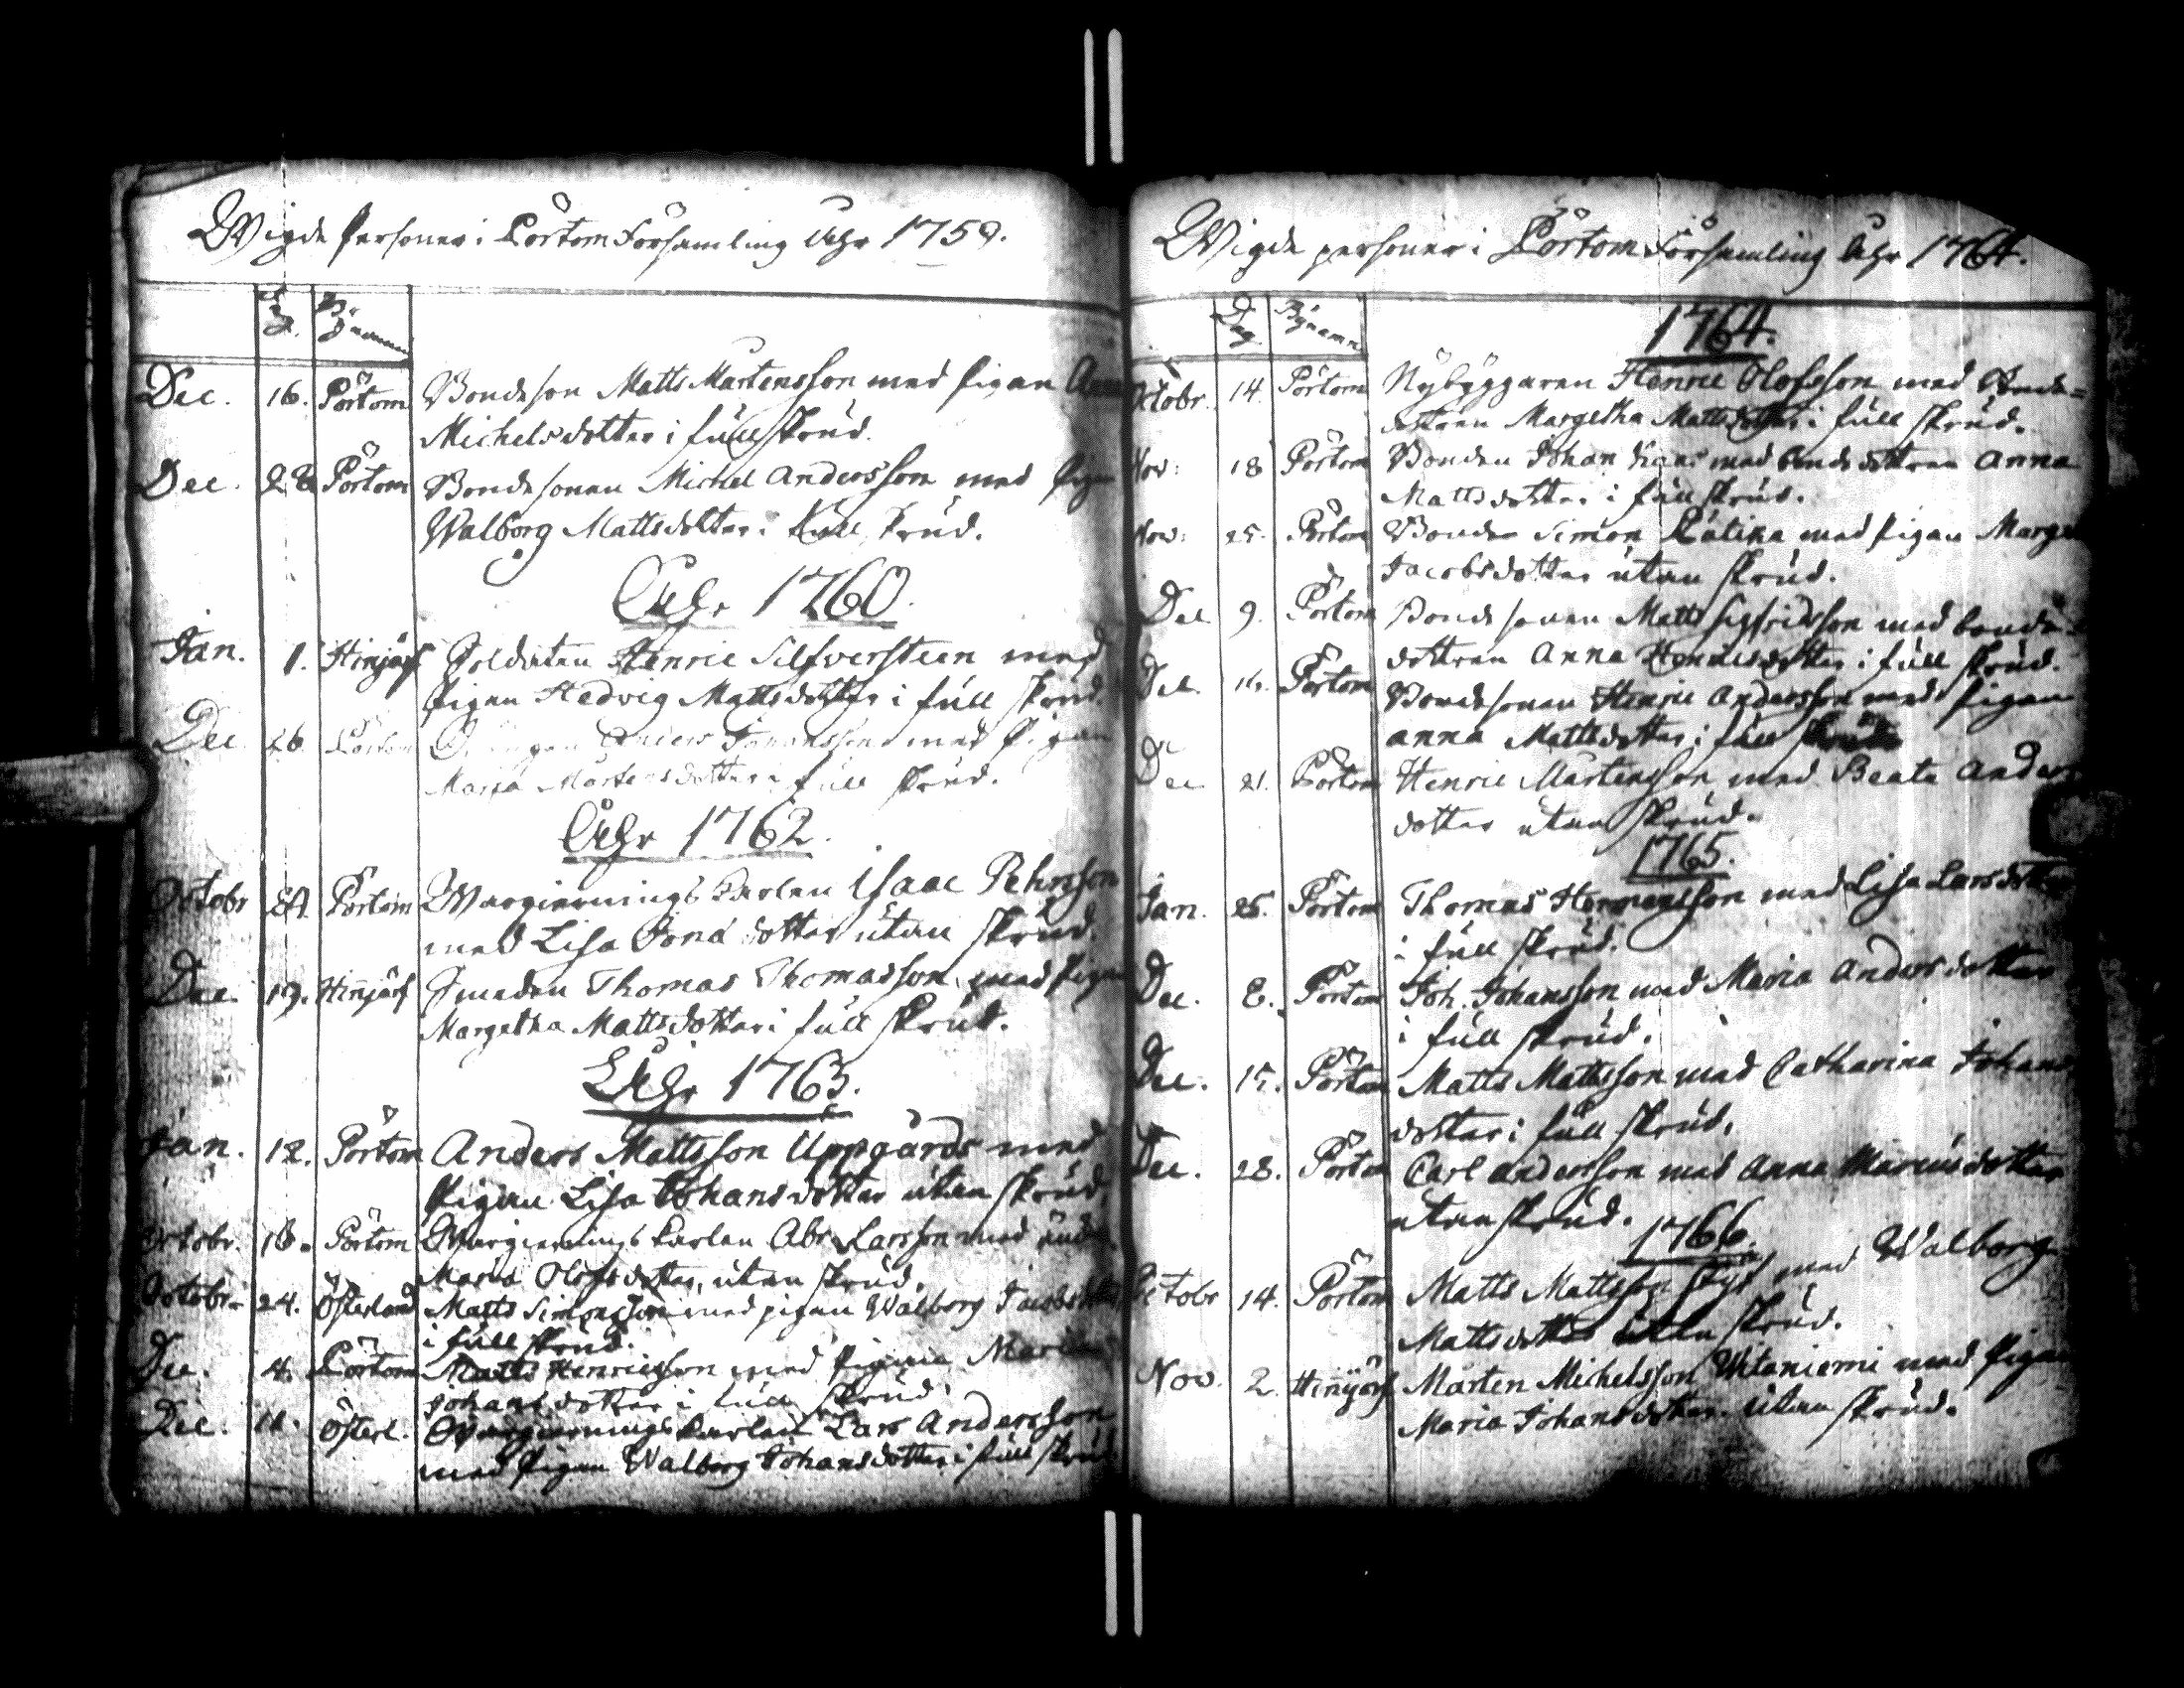 Wigde Personer i Pörtom Församling Åhr 1759.
Dec. 16. Pörtom Bondeson Matts Mårtensson med Pigan Anna
Michelsdotter i full skrud.
Dec. Pörtom Bondesonen Michel Andersson med Pigan
Walborg Mattsdotter i full skrud.
Åhr 1760.
Jan. 1. Hinjärf Soldaten Henric Silfversteen med
Pigan Hedvig Mattsdotter i full skrud.
Dec. 26. Pörtom Anders Johansson med Pigan
Maria Mårtensdotter i full skrud.
Åhr 1762.
Octobr Pörtom Wargierings Karlen Isaac Pehrsson
med Lisa Jonæ dotter utan skrud.
Dec. 19. Hinjärf Smeden Thomas Thomasson med Pigan
Margetha Mattsdotter i full skrud.
Åhr 1763.
Jan. 12. Pörtom Anders Mattsson Uppgårds med
Pigan Lisa Johansdotter utan skrud
Octobr. 16. Pörtom Wargierings Karlen Abr. Larsson med
Maria Olofsdotter, utan skrud.
Octobr. 24. Österland Matts Simonsson med pigan Walborg Jacobsdotter
i full skrud.
Dec. 4. Pörtom Matts Henricsson med Pigan Maria
Johansdotter i full skrud
Dec. 11. Österl. Wargierings Karlen Lars Andersson
med Pigan Walborg Johansdotter i full skrud
Wigde personer i Pörtom Församling Åhr 1764.
Dag Bynamn
1764.
Octobr. 14. Pörtom Nybyggaren Henric Olofsson med Bonde-
dottren Margetha Mattsdotter i full skrud.
Nov: 18 Pörtom Bonden Johan Hans med bondedottren Anna
Mattsdotter i full skrud.
Nov: 25. Pörtom Bonden Simon med Pigan Marget
Jacobsdotter utan skrud.
Dec 9. Pörtom Bondesonen Matts Sigfridsson med bonde-
dottren Anna Henricsdotter i full skrud.
Dec. 16. Pörtom Bondesonen Henric Andersson med Pigan
Anna Mattsdotter i full skrud
Dec 21. Pörtom Henric Mårtensson med Beata Anders
dotter utan skrud.
1765.
Jan. 26. Pörtom Thomas Hermansson med Lisa Larsdotter
i full skrud.
Dec. 8. Pörtom Joh. Johansson med Maria Andersdotter
i full skrud.
Dec. 15. Pörtom Matts Mattsson med Catharina Johans
dotter i full skrud.
Dec. 28. Pörtom Carl Andersson med Anna Mariusdotter
utan skrud.
1766.
Octobr 14. Pörtom Matts Mattsson med Walborg
Mattsdotter utan skrud.
Nov. 2. Hinjärf Mårten Michelsson Witaniemi med Pigan
Maria Johansdotter utan skrud.